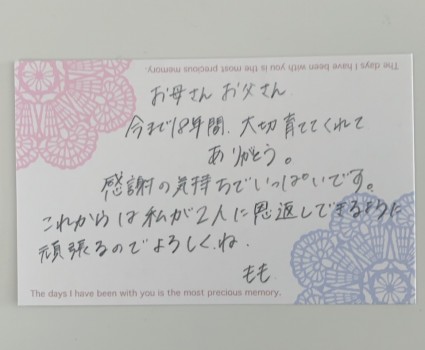 The days I have been with you is the most precious memory.
お母さん お父さん
今まで18年間、大切育ててくれて
ありがとう。
感謝の気持ちでいっぱいです。
これからは私が2人に恩返しできるように
頑張るのでよろしくね.
もも
The days I have been with you is the most precious memory.